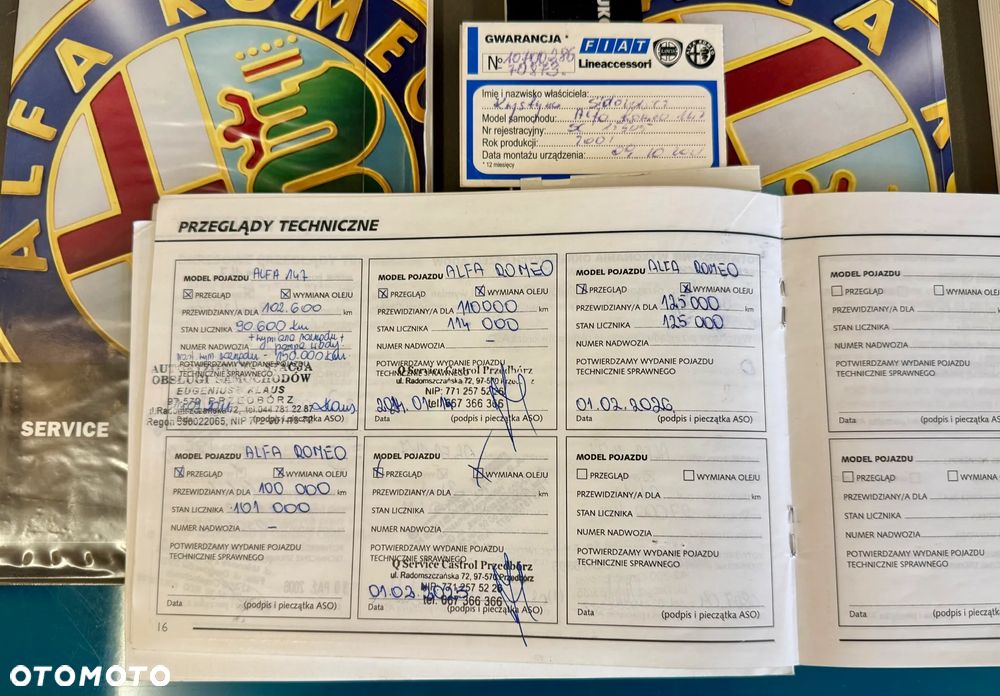 ALFA ROMEO
GWARANCJA *
FIAT
Nº
Lineaccessori
Imię i nazwisko właściciela:
Krystyna
Model samochodu: Alfa Romeo 147
Nr rejestracyjny:
Rok produkcji: 2001
Data montażu urządzenia: 09 10
* 12 miesięcy
SERVICE
PRZEGLĄDY TECHNICZNE
MODEL POJAZDU ALFA 147
PRZEGLĄD WYMIANA OLEJU
PRZEWIDZIANY/A DLA 102.600 km
STAN LICZNIKA 90.600 km
+ wymiana rozrządu +
NUMER NADWOZIA pompa wody.
150.000 km
POTWIERDZAMY WYDANIE POJAZDU
TECHNICZNIE SPRAWNEGO
OBSŁUGI SAMOCHODÓW
EUGENIUSZ KLAUS
PRZEDBÓRZ
tel. 044 781 22 87
Data (podpis i pieczątka ASO)
MODEL POJAZDU ALFA ROMEO
PRZEGLĄD WYMIANA OLEJU
PRZEWIDZIANY/A DLA 110000 km
STAN LICZNIKA 114 000
NUMER NADWOZIA -
POTWIERDZAMY WYDANIE POJAZDU
TECHNICZNIE SPRAWNEGO
Q Service Castrol Przedbórz
ul. Radomszczańska 72, 97-570 Przedbórz
NIP: 771 257 52 26
tel. 667 366 366
Data (podpis i pieczątka ASO)
MODEL POJAZDU ALFA ROMEO
PRZEGLĄD WYMIANA OLEJU
PRZEWIDZIANY/A DLA 125 000 km
STAN LICZNIKA 125 000
NUMER NADWOZIA
POTWIERDZAMY WYDANIE POJAZDU
TECHNICZNIE SPRAWNEGO
01.02.2026
Data (podpis i pieczątka ASO)
MODEL POJAZDU
PRZEGLĄD WYMIANA
PRZEWIDZIANY/A DLA
STAN LICZNIKA
NUMER NADWOZIA
POTWIERDZAMY WYDANIE POJAZDU
TECHNICZNIE SPRAWNEGO
Data (podpis
MODEL POJAZDU ALFA ROMEO
PRZEGLĄD WYMIANA OLEJU
PRZEWIDZIANY/A DLA 100 000 km
STAN LICZNIKA 101 000
NUMER NADWOZIA -
POTWIERDZAMY WYDANIE POJAZDU
TECHNICZNIE SPRAWNEGO
Data (podpis i pieczątka ASO)
MODEL POJAZDU
PRZEGLĄD WYMIANA OLEJU
PRZEWIDZIANY/A DLA km
STAN LICZNIKA
NUMER NADWOZIA
POTWIERDZAMY WYDANIE POJAZDU
TECHNICZNIE SPRAWNEGO
Q Service Castrol Przedbórz
ul. Radomszczańska 72, 97-570 Przedbórz
NIP: 771 257 52 26
01.02.2025 tel. 667 366 366
Data (podpis i pieczątka ASO)
MODEL POJAZDU
PRZEGLĄD WYMIANA OLEJU
PRZEWIDZIANY/A DLA km
STAN LICZNIKA
NUMER NADWOZIA
POTWIERDZAMY WYDANIE POJAZDU
TECHNICZNIE SPRAWNEGO
Data (podpis i pieczątka ASO)
MODEL POJAZDU
PRZEGLĄD WYMIANA
PRZEWIDZIANY/A DLA
STAN LICZNIKA
NUMER NADWOZIA
POTWIERDZAMY WYDANIE POJAZDU
TECHNICZNIE SPRAWNEGO
Data (podpis
16
OTOMOTO